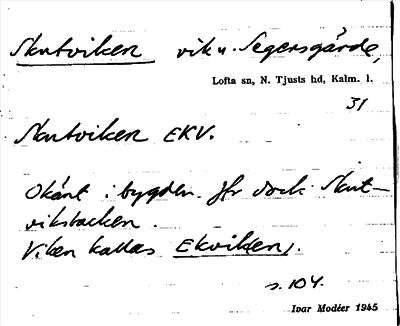 Skutviken vik u. Segersgärde,
Lofta sn, N. Tjusts hd, Kalm. l.
31
Skutviken EKV.
Okänt i bygden. Jfr dock Skut-
viksbacken.
Viken kallas Ekviken.
s. 104.
Ivar Modéer 1945